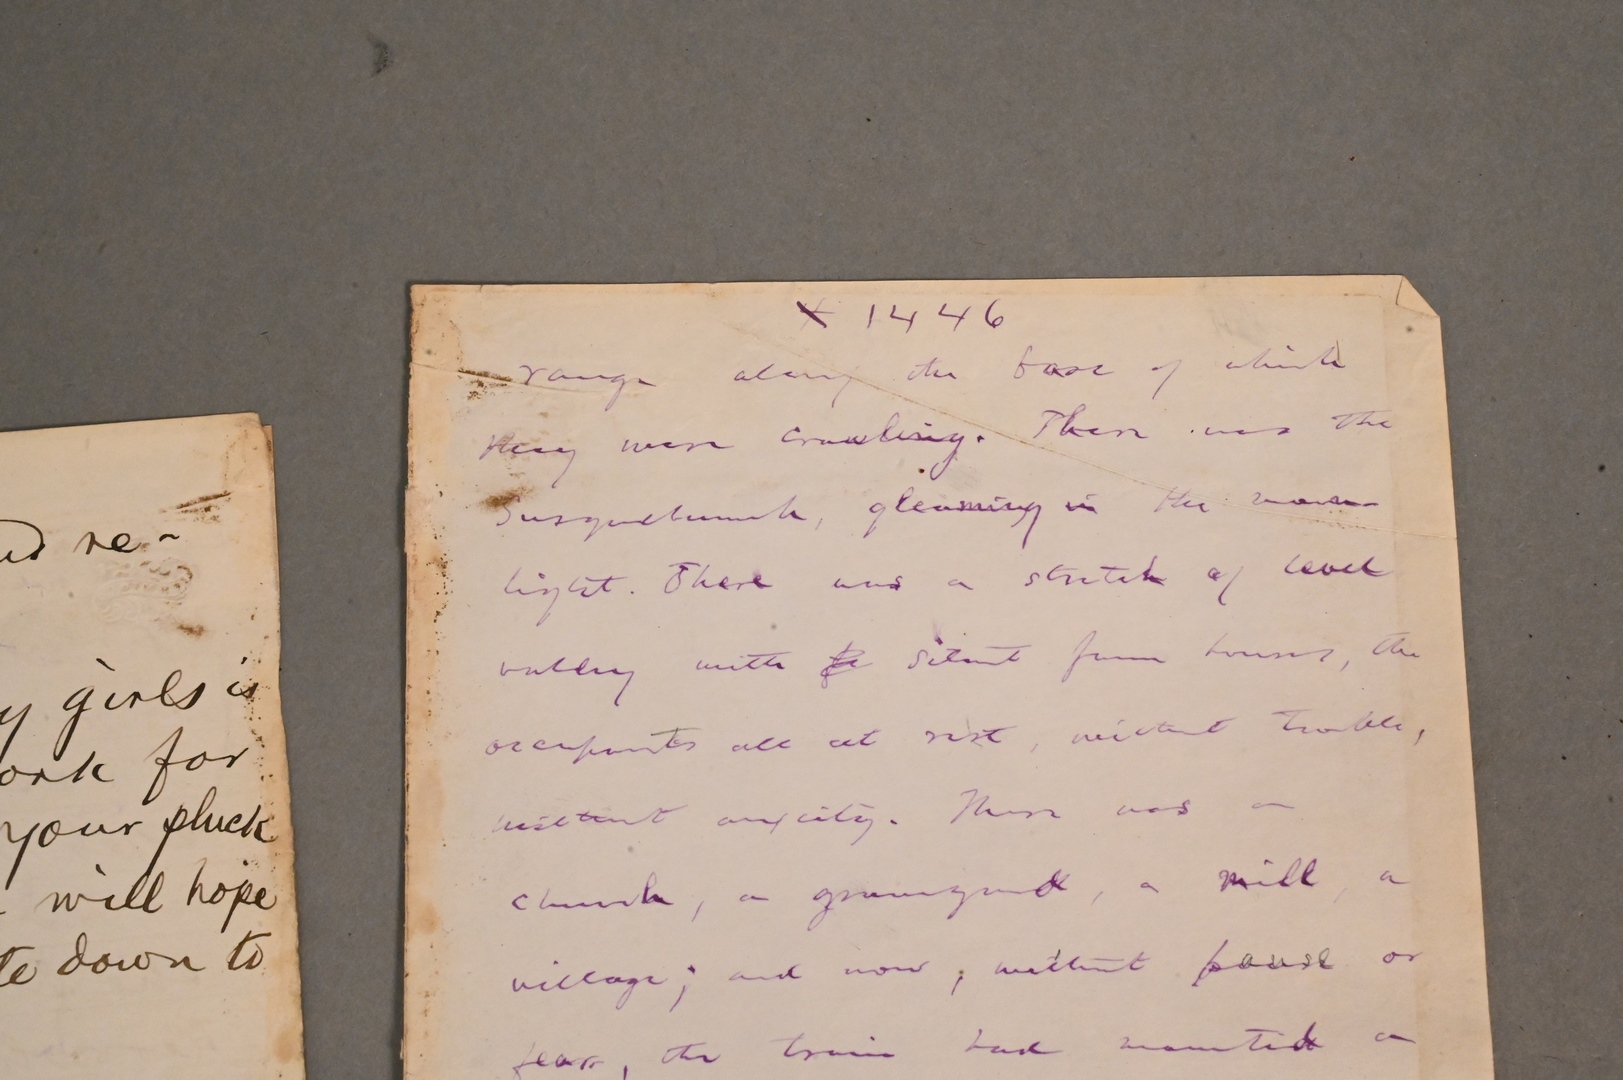 ud re-
y girls is
ork for
your pluck
will hope
te down to
x 1446
range along the base of which
they were crawling. There was the
Susquehannah, gleaming in the moon-
light. There was a stretch of level
valley with silent farm houses, the
occupants all at rest, without trouble,
without anxiety. There was a
church, a graveyard, a mill, a
village; and now, without pause or
fear, the train had mounted a